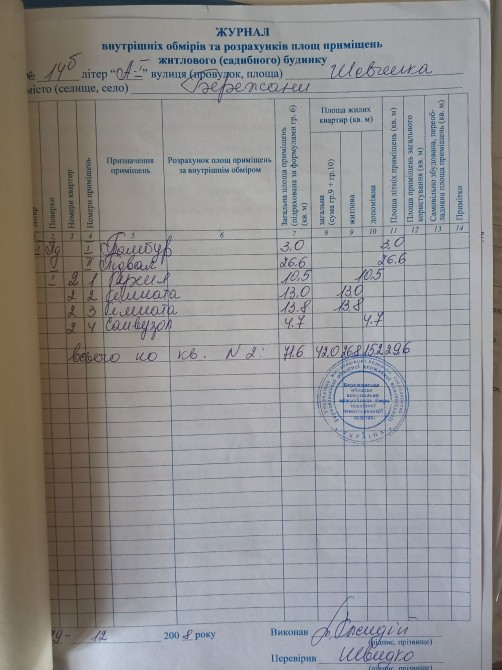 ЖУРНАЛ
внутрішніх обмірів та розрахунків площ приміщень
житлового (садибного) будинку
№ 14б літер "А-І" вулиця (провулок, площа) Шевченка
місто (селище, село) Бережани
Поверхи
Номери квартир
Номери приміщень
Призначення приміщень
Розрахунок площ приміщень за внутрішнім обміром
Загальна площа приміщень (підрахована за формулами гр. 6) (кв. м)
Площа жилих квартир (кв. м)
загальна (сума гр.9 + гр.10)
житлова
допоміжна
Площа літніх приміщень (кв. м)
Площа приміщень загального користування (кв. м)
Самовільно збудована, переобладнана площа приміщень (кв. м)
Примітки
1 2 3 4 5 6 7 8 9 10 11 12 13 14
I Тамбур 3.0 3.0
II Підвал 26.6 26.6
I 2 1 Кухня 10.5 10.5
2 2 кімната 13.0 13.0
2 3 кімната 13.8 13.8
2 4 санвузол 4.7 4.7
всього по кв. N 2: 71.6 42.0 26.8 15.2 29.6
Бережанське
обласне
комунальне
бюро
технічної
інвентаризації
УКРАЇНА
12 2008 року
Виконав
(підпис, прізвище)
Перевірив Швидко